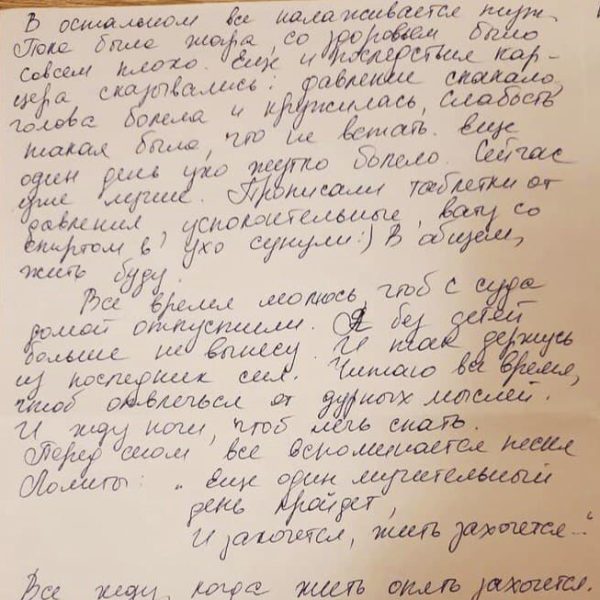 В остальном все налаживается тьфу.
Пока была жара, со здоровьем было
совсем плохо. Еще и последствия кар-
цера сказывались: давление скакало,
голова болела и кружилась, слабость
такая была, что не встать. Еще
один день ухо жутко болело. Сейчас
уже лучше. Прописали таблетки от
давления, успокоительные, вату со
спиртом в ухо сунули:) В общем,
жить буду.
Все время молюсь, чтоб с суда
домой отпустили. Я без детей
больше не вынесу. И так держусь
из последних сил. Читаю все время,
чтоб отвлечься от дурных мыслей.
И жду ночи, чтоб лечь спать.
Перед сном все вспоминается песня
Лолиты: „Еще один мучительный
день пройдет,
И захочется, жить захочется..."
Все жду, когда жить опять захочется.